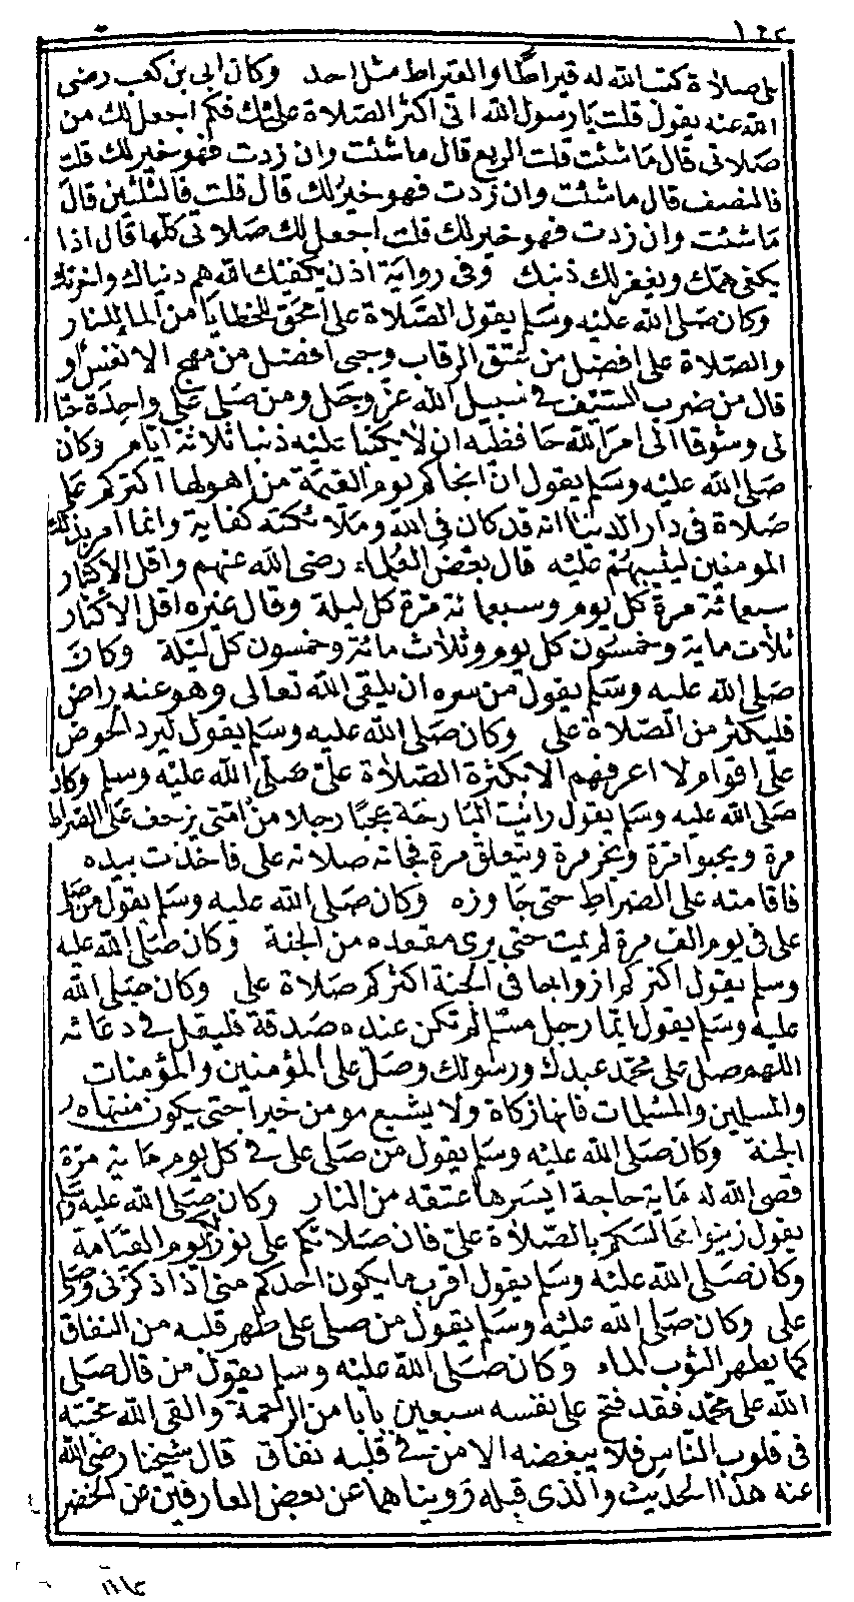 على صلاة كتب الله له قيراطا والقيراط مثل احد وكان ابى بن كعب رضى
الله عنه يقول قلت يا رسول الله انى اكثر الصلاة عليك فكم اجعل لك من
صلاتى قال ما شئت قلت الربع قال ما شئت وان زدت فهو خير لك قلت
فالنصف قال ما شئت وان زدت فهو خير لك قال قلت فالثلثين قال
ما شئت وان زدت فهو خير لك قلت اجعل لك صلاتى كلها قال اذا
يكفى همك ويغفر لك ذنبك وفى رواية اذن يكفيك الله هم دنياك واخرتك
وكان صلى الله عليه وسلم يقول الصلاة على امحق للخطايا من الماء للنار
والصلاة على افضل من عتق الرقاب وحبى افضل من مهج الانفس او
قال من ضرب السيف فى سبيل الله عز وجل ومن صلى على واحدة حبا
لى وشوقا الى امر الله حافظيه ان لا يكتبا عليه ذنبا ثلاثة ايام وكان
صلى الله عليه وسلم يقول ان انجاكم يوم القيمة من اهولها اكثركم على
صلاة فى دار الدنيا انه قد كان فى الله وملائكته كفاية وانما امر بذلك
المومنين ليثيبهم عليه قال بعض العلماء رضى الله عنهم واقل الاكثار
سبعمائة مرة كل يوم وسبعمائة مرة كل ليلة وقال غيره اقل الاكثار
ثلاث ماية وخمسون كل يوم وثلاث مائة وخمسون كل ليلة وكان
صلى الله عليه وسلم يقول من سره ان يلقى الله تعالى وهو عنه راض
فليكثر من الصلاة على وكان صلى الله عليه وسلم يقول ليرد الحوض
على اقوام لا اعرفهم الا بكثرة الصلاة على صلى الله عليه وسلم وكان
صلى الله عليه وسلم يقول رايت البارحة عجبا رجلا من امتى يزحف على الصراط
مرة ويحبوا مرة ويخر مرة ويتعلق مرة فجاته صلاته على فاخذت بيده
فاقامته على الصراط حتى جاوزه وكان صلى الله عليه وسلم يقول من صلى
على فى يوم الف مرة لم يمت حتى يرى مقعده من الجنة وكان صلى الله عليه
وسلم يقول اكثركم ازواجا فى الجنة اكثركم صلاة على وكان صلى الله
عليه وسلم يقول ايما رجل مسلم لم تكن عنده صدقة فليقل فى دعائه
اللهم صل على محمد عبدك ورسولك وصل على المؤمنين والمؤمنات
والمسلمين والمسلمات فانها زكاة ولا يشبع مومن خيرا حتى يكون منتهاه
الجنة وكان صلى الله عليه وسلم يقول من صلى على فى كل يوم ماية مرة
قضى الله له ماية حاجة ايسرها عتقه من النار وكان صلى الله عليه وسلم
يقول زينوا مجالسكم بالصلاة على فان صلاتكم على نور لكم يوم القيامة
وكان صلى الله عليه وسلم يقول اقرب ما يكون احدكم منى اذا ذكرنى وصلى
على وكان صلى الله عليه وسلم يقول من صلى على طهر قلبه من النفاق
كما يطهر الثوب الماء وكان صلى الله عليه وسلم يقول من قال صلى
الله على محمد فقد فتح على نفسه سبعين بابا من الرحمة والقى الله محبته
فى قلوب الناس فلا يبغضه الا من فى قلبه نفاق قال شيخنا رضى الله
عنه هذا الحديث والذى قبله رويناهما عن بعض العارفين عن الخضر